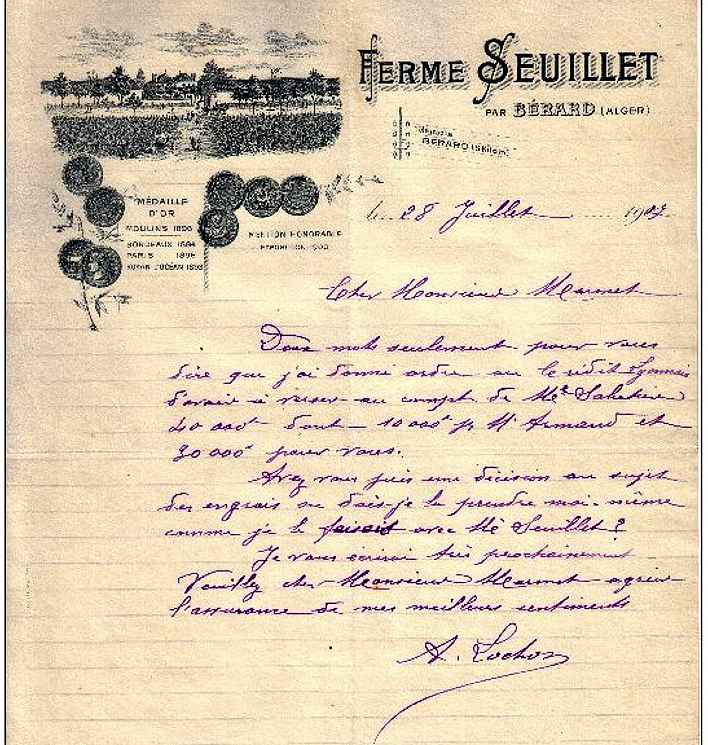 FERME SEUILLET
PAR BÉRARD (ALGER)
BÉRARD
MÉDAILLE
D'OR
MOULINS
BORDEAUX
PARIS
MENTION HONORABLE
28 Juillet 190
Cher Monsieur Marmet
Deux mots seulement pour vous
dire que j'ai donné ordre au Crédit Lyonnais
d'avoir à verser au compte de
40 000 dont 10 000 pr Mr Armand et
30 000 pour vous.
Avez vous pris une décision au sujet
des engrais ou dois-je le prendre moi-même
comme je le faisais avec Mr Seuillet?
Je vous écrirai très prochainement
Veuillez cher Monsieur Marmet agréer
l'assurance de mes meilleurs sentiments
A. Lochon